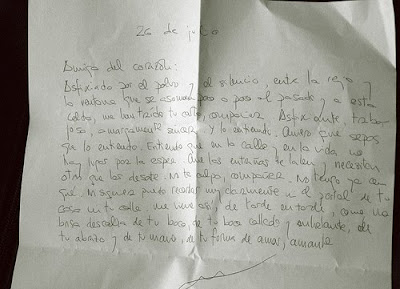 26 de julio
Amiga del corazón:
Asfixiado por el polvo y el silencio, entre la reja y
la ventana que se asoman paso a paso al pasado y a esta
calor, me han traído tu calle, compañera. Asfixiante, traba
joso, amargamente sincero y lo entiendo. Quiero que sepas
que lo entiendo. Entiendo que en la calle y en la vida no
hay lugar para la espera. Que las entrañas te laten y necesitan
otra que las desate. No te culpo, compañera. No tengo ya con
qué. Ni siquiera puedo recordar muy claramente ni el portal de tu
casa ni tu calle, me viene así, de tarde en tarde, como una
brisa descalza de tu boca, de tu boca callada y anhelante, de
tu abrazo y de tu mano, de tu forma de amar, amante